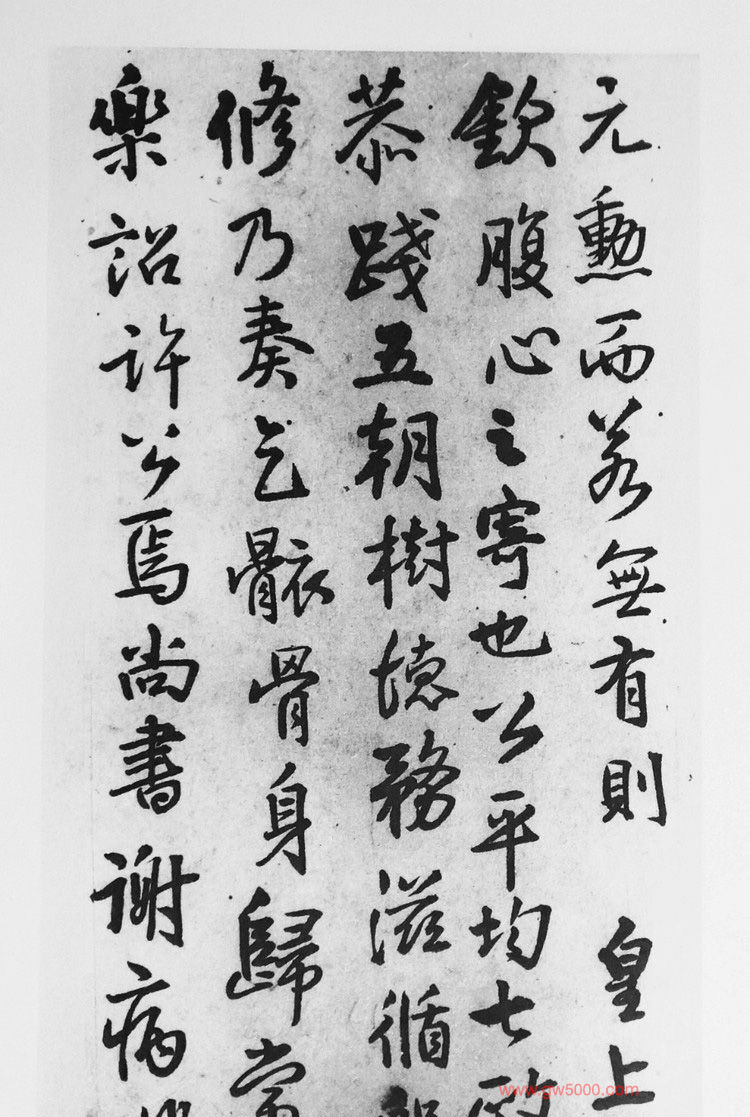 元勳而若無有則 皇上
欽腹心之寄也公平均七政
恭踐五朝樹德務滋循
修乃奏乞骸骨身歸常
樂詔許公焉尚書謝病
www.gw5000.com